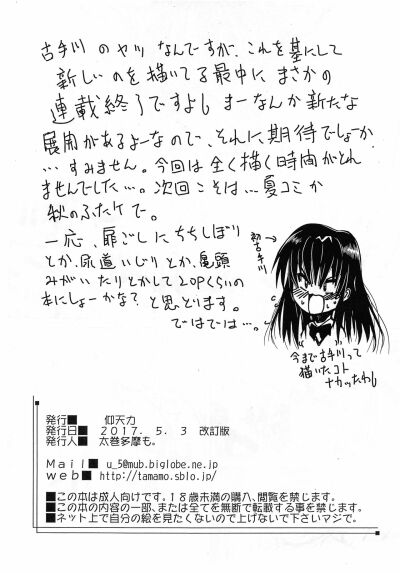 古手川のヤツなんですが、これを基にして
新しいのを描いてる最中にまさかの
連載終了ですよし まーなんか新たな
展開があるよーなので、それに期待でしょーか
… すみません。今回は全く描く時間がとれ
ませんでした…。次回こそは…夏コミか
秋のふたケで。
一応、扉ごしにちちしぼり
とか、尿道いじりとか、亀頭
みがいたりとかして20Pくらいの
本にしよーかな? と思とります。
ではでは…。
古手川
今まで古手川って
描いたコト
ナカッたわし
発行■ 仰天力
発行日■ 2017. 5. 3 改訂版
発行人■ 太巻多摩も。
Mail■ u_5@mub.biglobe.ne.jp
web■ http://tamamo.sblo.jp/
■この本は成人向けです。18歳未満の購入、閲覧を禁じます。
■この本の内容の一部、または全てを無断で転載する事を禁じます。
■ネット上で自分の絵を見たくないので上げないで下さいマジで。